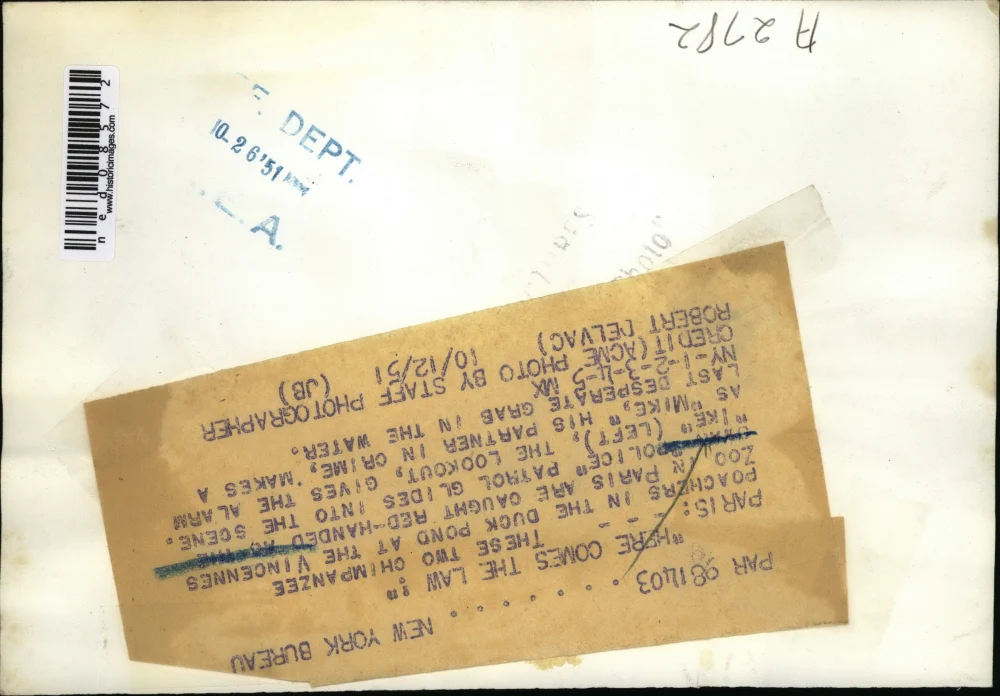 A 2782
n e d 0 8 5 7 2
www.historicimages.com
DEPT.
10-26'51
A.
PAR 981403 . . . . . . . NEW YORK BUREAU
"HERE COMES THE LAW!"
PARIS: - - - THESE TWO CHIMPANZEE
POACHERS IN THE DUCK POND AT THE VINCENNES
ZOO IN PARIS ARE CAUGHT RED-HANDED AS THE
"POLICE" PATROL GLIDES INTO THE SCENE.
"IKE" (LEFT), THE LOOKOUT, GIVES THE ALARM
AS "MIKE," HIS PARTNER IN CRIME, MAKES A
LAST DESPERATE GRAB IN THE WATER.
NY-1-2-3-4-5 MX (JB)
CREDIT (ACME PHOTO BY STAFF PHOTOGRAPHER
ROBERT DELVAC) 10/12/51